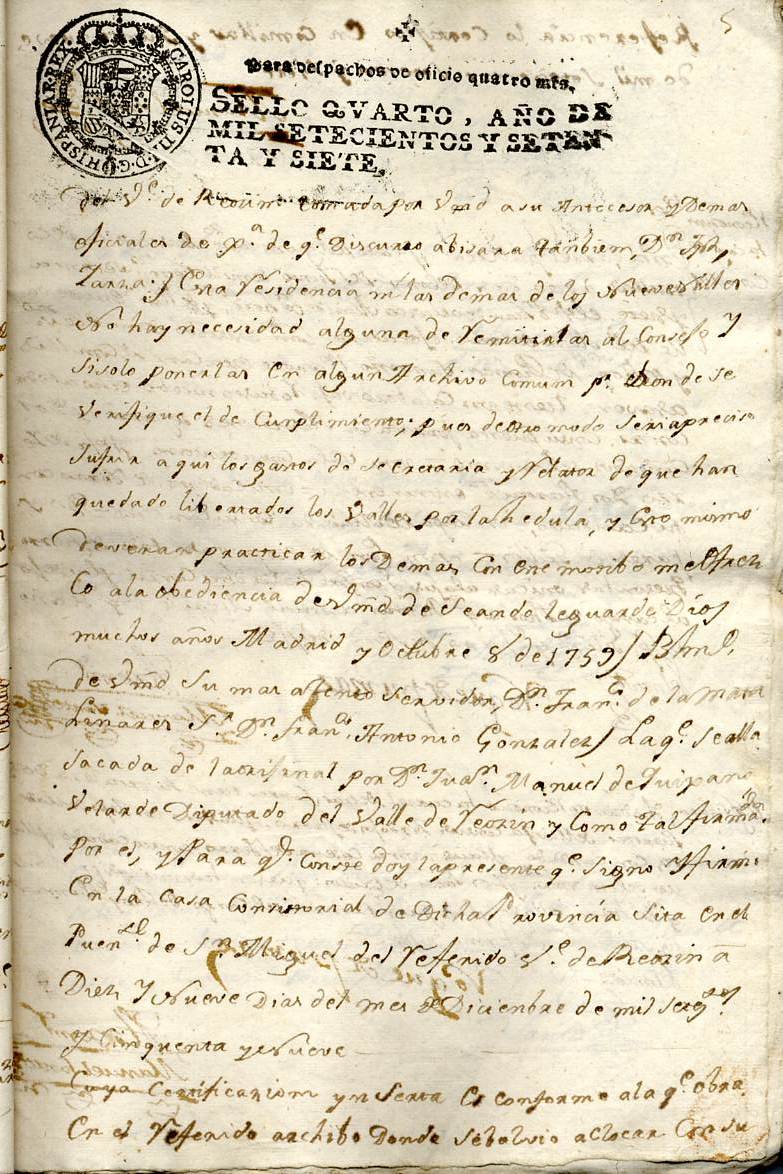 5
CAROLUS III D. G. HISPANIAR. REX
Para despachos de oficio quatro mrs.
SELLO QVARTO, AÑO DE
MIL SETECIENTOS Y SETEN
TA Y SIETE.
del Ve. de Reoin tomada por Vmd a su Antecesor y Demas
oficiales de xa. de qe. Discurro abisara tanbiem, Dn
esta Residencia ni las demas de los Nueve Valles
No hay necesidad alguna de Remitirlas al Consejo Y
si solo ponerlas en algun Archivo Comum pr. Don de se
Verifique el de Cunplimiento; pues de otro modo seria preciso
Sufrir aqui los gastos de Secretaria y Relator de que han
quedado libertados los Valles por la hedula, y Esto mismo
deveran practicar los Demas, Con ese motibo me Ofrez
Co a la obediencia de Vmd. deseando le guarde Dios
muchos años Madrid y Octubre 8 de 1759/ B lm d,
de Vmd Su mas atento Servidor, Dn. Franco. de la Mata
Linares Sr. Dn. Franco. Antonio Gonzalez/ La qe. se alla
sacada de la orijinal por Dn. Juan. Manuel de Quijano
Velarde Diputado del Valle de Reozin y Como tal firmada
Por el, y Para qe. Conste doy la presente qe. Signo Y firmo
En la Casa Consistorial de Dicha Provincia Sita en el
Puente de Sn. Miguel del Referido Ve. de Reozin a
Diez Y Nueve Dias del mes de Diciembre de mil Setezos
Y Cinquenta y nueve
Cuya Certificazion ynserta es conforme a la qe. obra
En el Referido archibo Donde se bolvio a clocar Con su